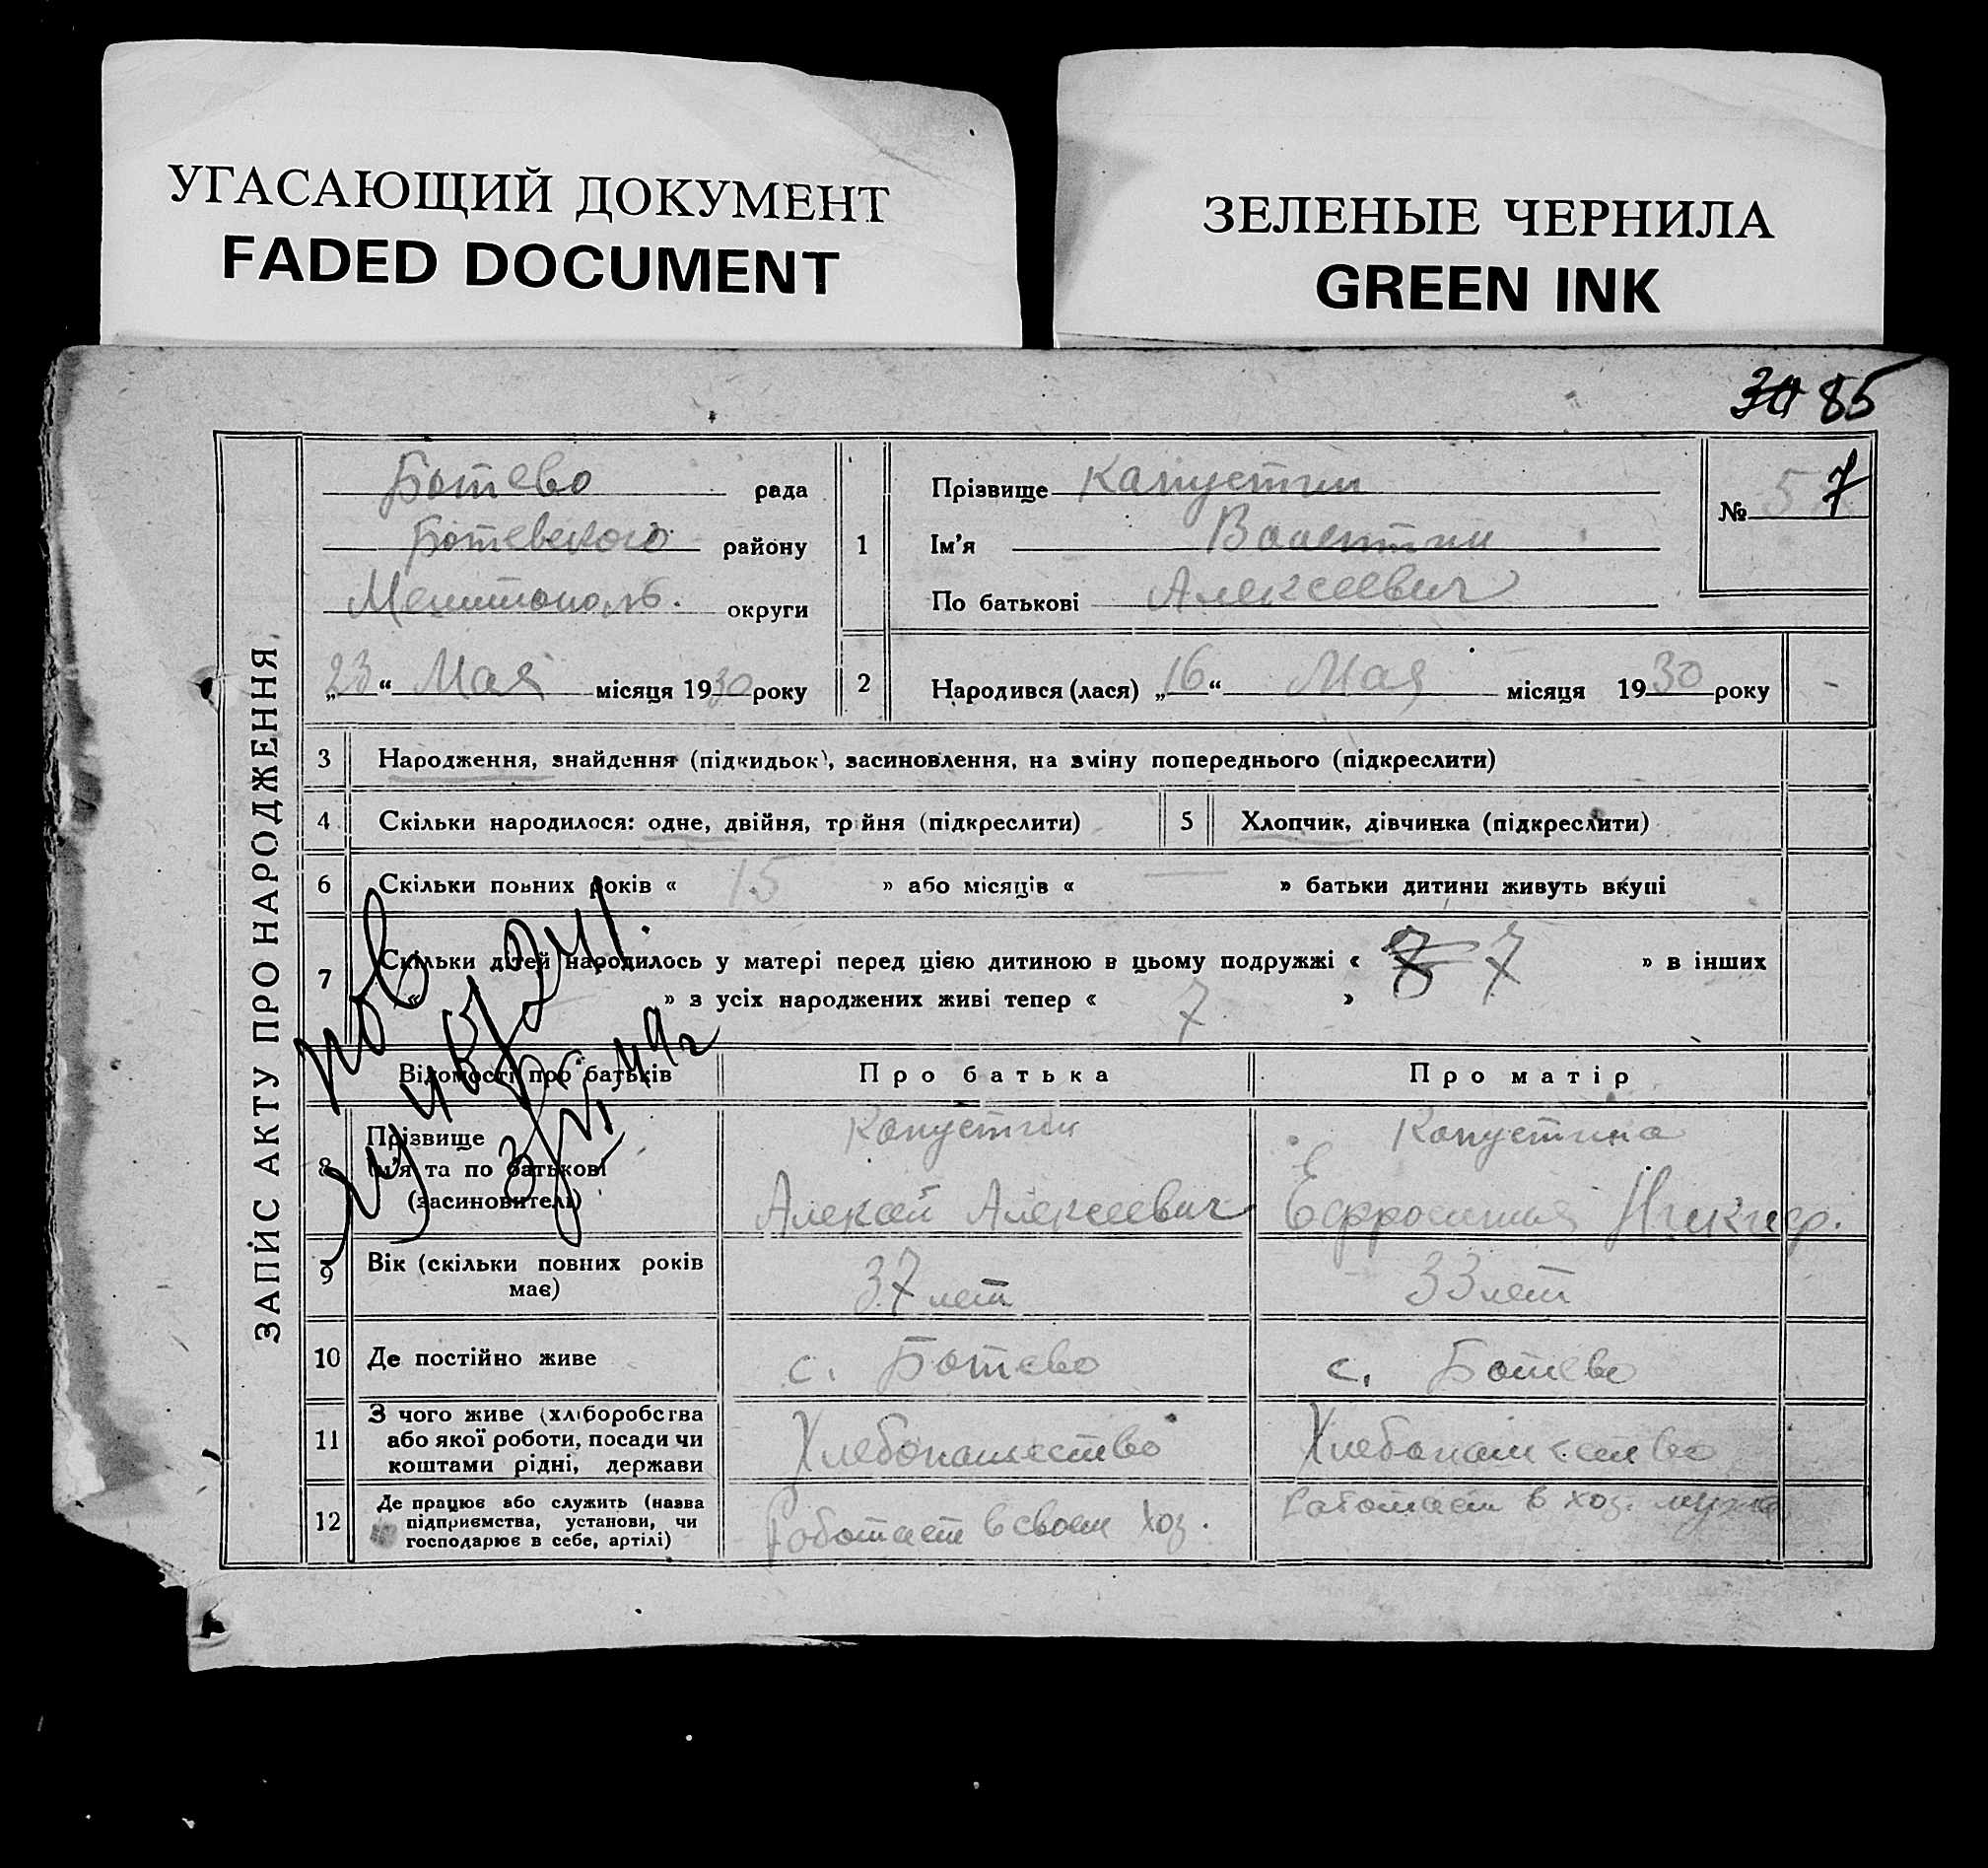 УГАСАЮЩИЙ ДОКУМЕНТ
FADED DOCUMENT
ЗЕЛЕНЫЕ ЧЕРНИЛА
GREEN INK
85
ЗАПИС АКТУ ПРО НАРОДЖЕННЯ
Ботево рада
Ботевского району
Мелитополь. округи
„23“ Мая місяця 1930 року
1
Прізвище Капустин
Ім'я Валентин
По батькові Алексеевич
№ 57
2 Народився (лася) „16“ Мая місяця 1930 року
3 Народження, знайдення (підкидьок), засиновлення, на зміну попереднього (підкреслити)
4 Скільки народилося: одне, двійня, трійня (підкреслити)
5 Хлопчик, дівчинка (підкреслити)
6 Скільки повних років « 15 » або місяців « — » батьки дитини живуть вкупі
7 Скільки дітей народилось у матері перед цією дитиною в цьому подружжі « 7 » в інших
« » з усіх народжених живі тепер « 7 »
Відомості про батьків Про батька Про матір
8 Прізвище Капустин Капустина
Ім'я та по батькові
(засиновителі) Алексей Алексеевич Ефросиния Никиф.
9 Вік (скільки повних років
має) 37 лет 33 лет
10 Де постійно живе с. Ботево с. Ботево
11 З чого живе (хліборобства
або якої роботи, посади чи
коштами рідні, держави Хлебопашество Хлебопашество
12 Де працює або служить (назва
підприємства, установи, чи
господарює в себе, артілі) Работает в своем хоз. Работает в хоз. мужа